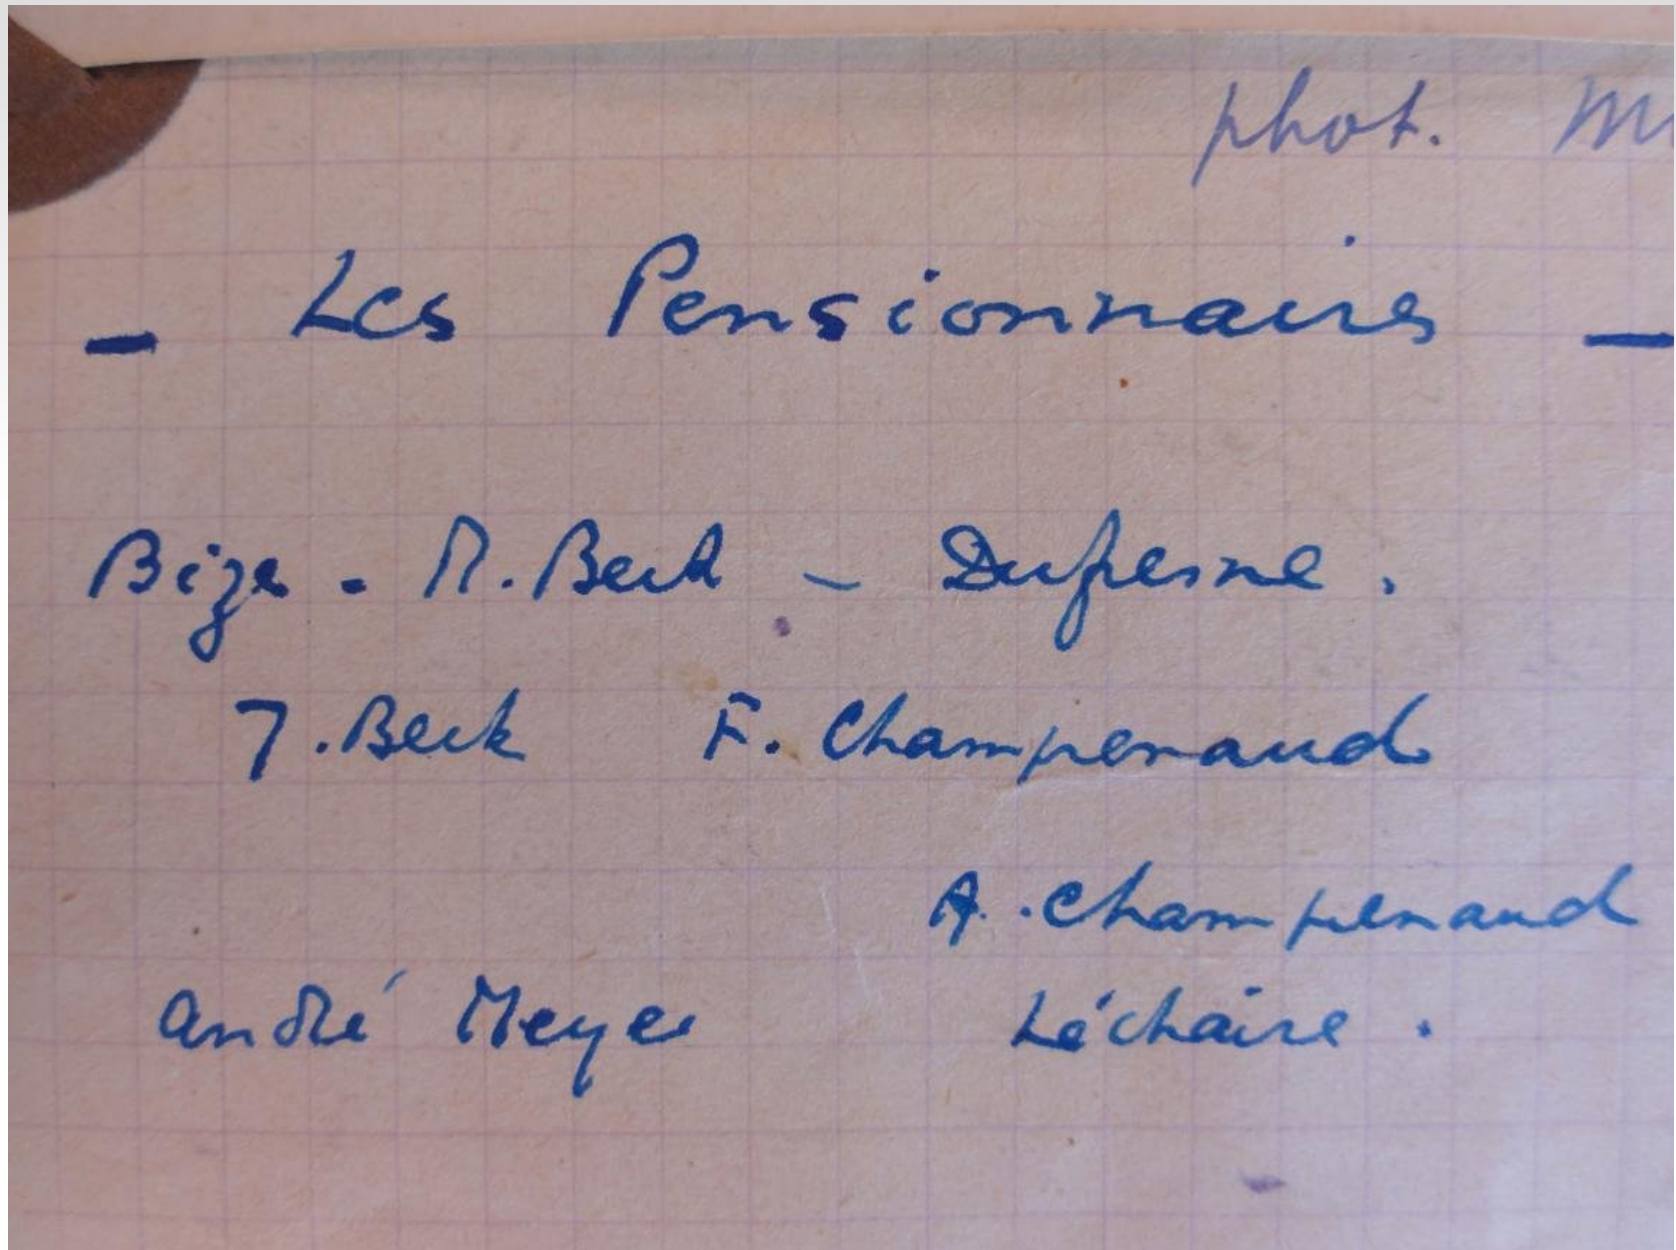 phot. M
- Les Pensionnaires -
Bize - M. Beck - Dufresne.
J. Beck F. Champenaud
A. Champenaud
André Meyer Léchaire.